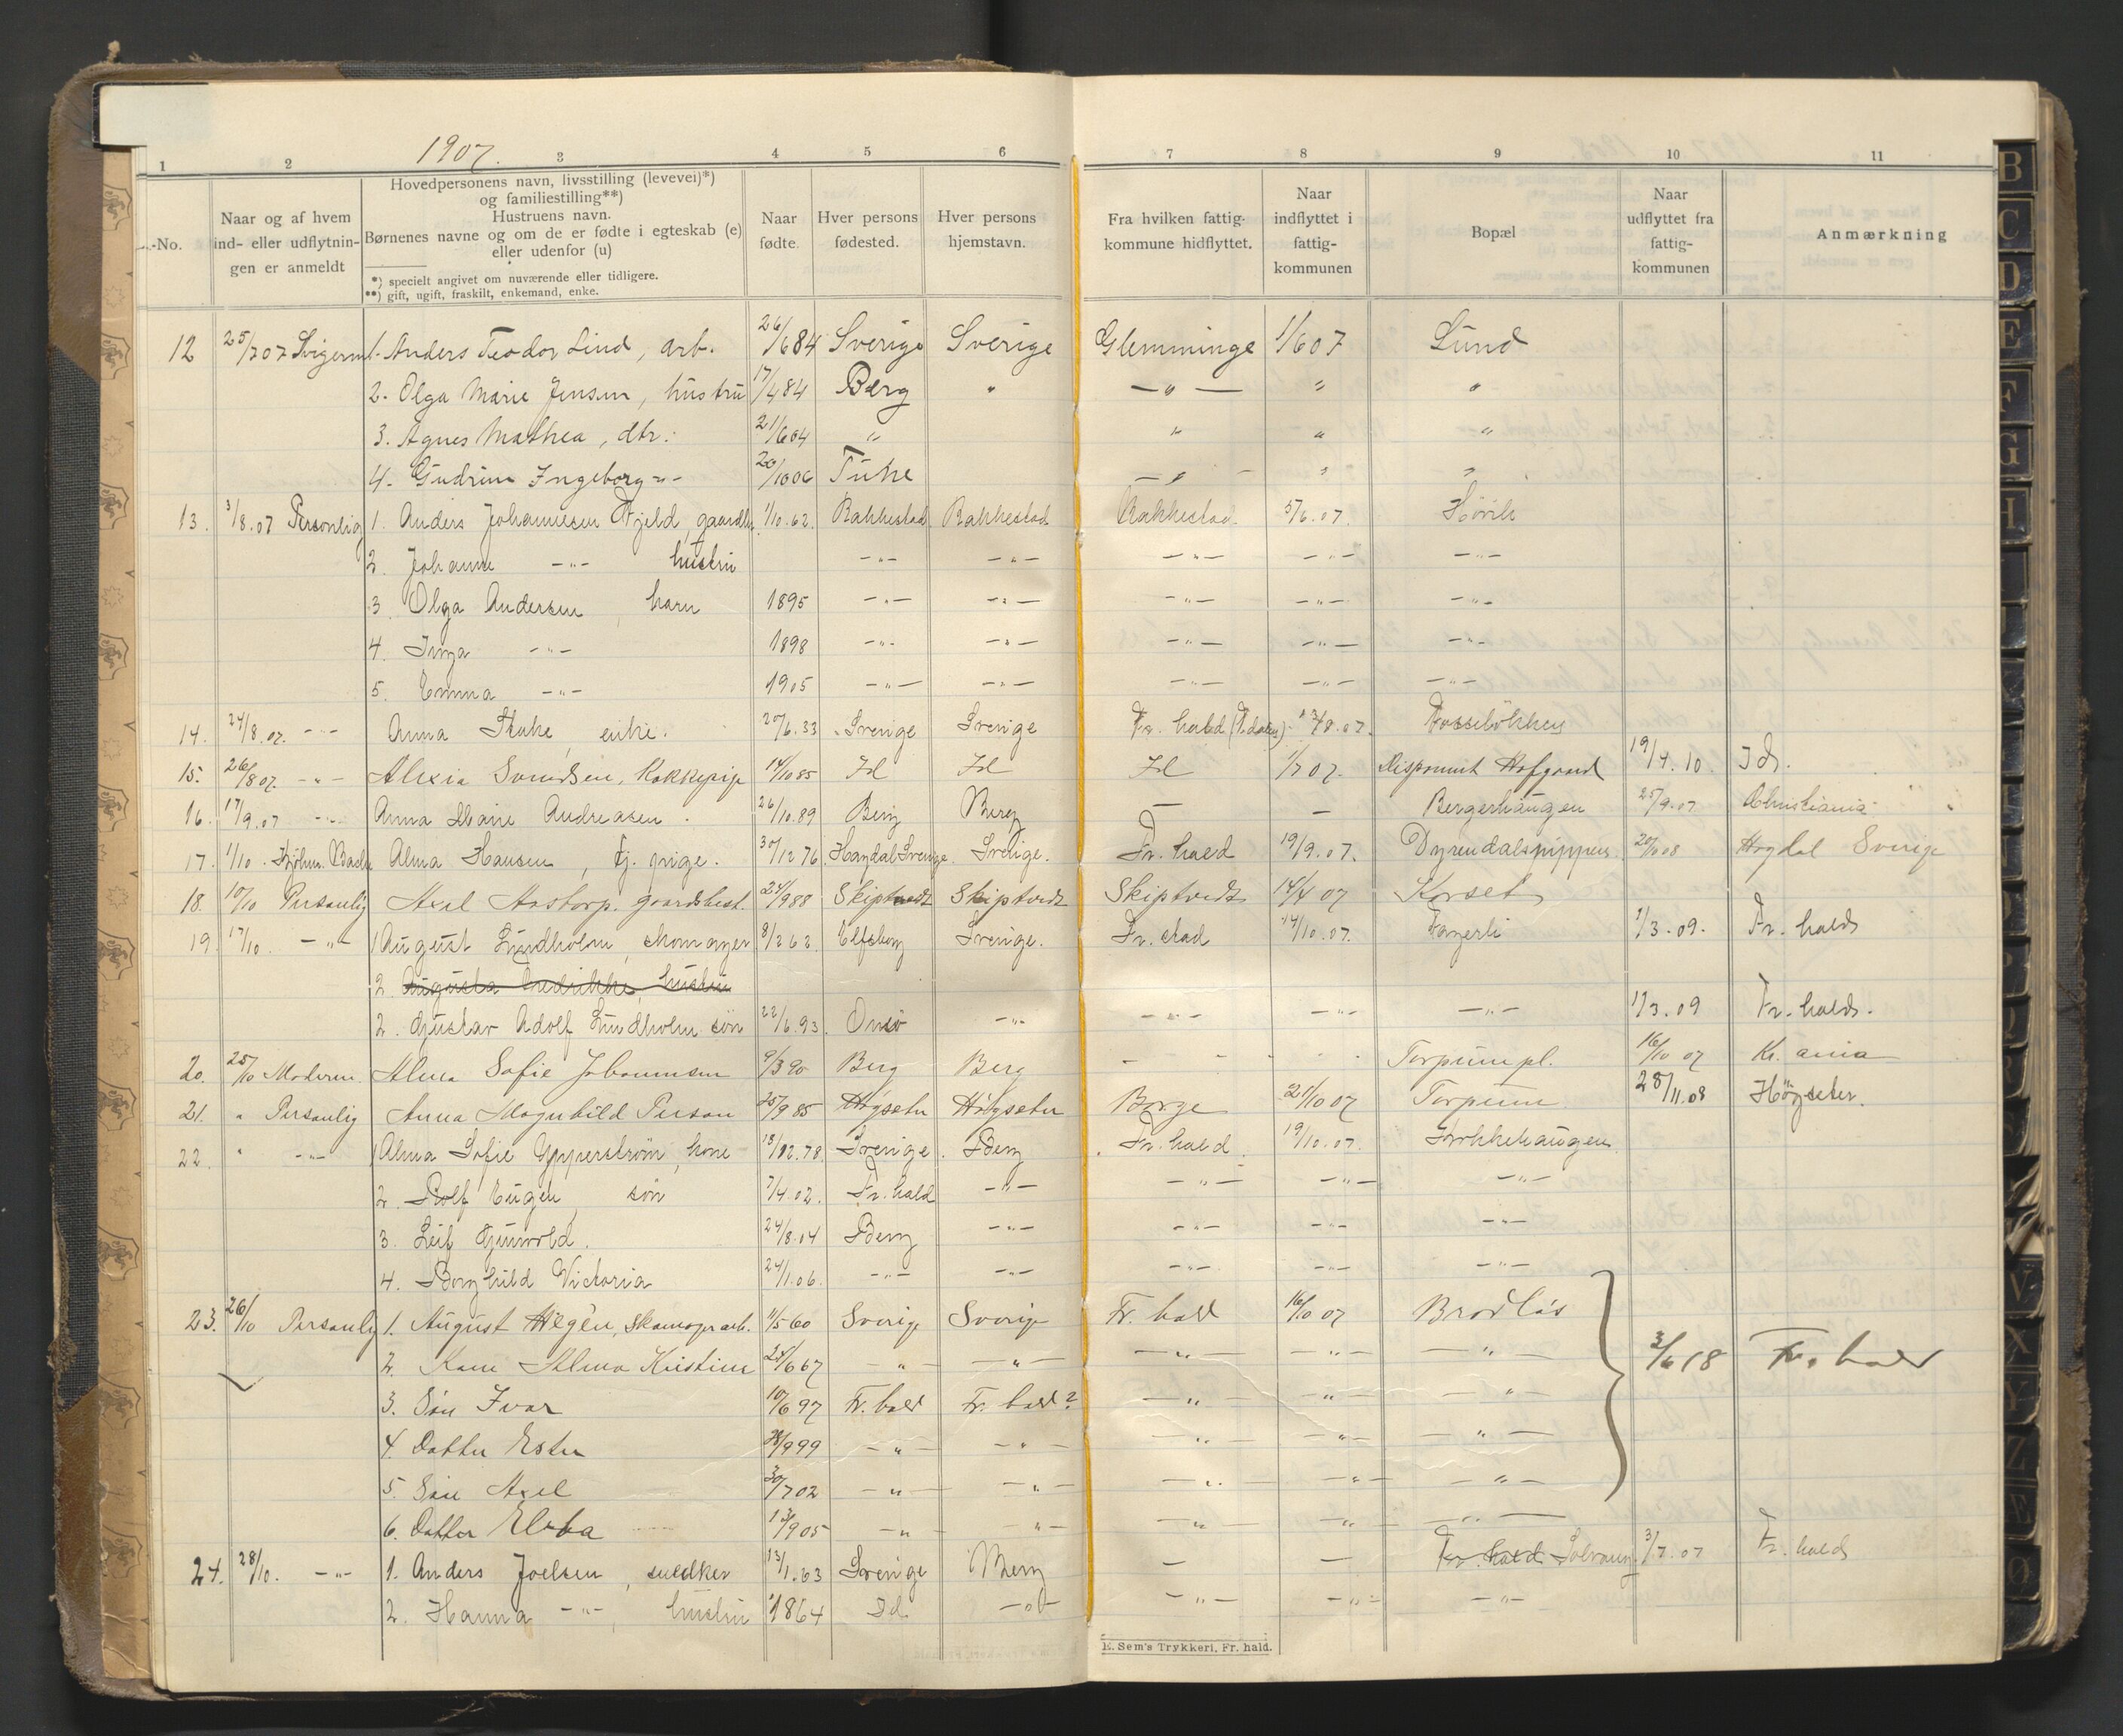 1907.
1 2 3 4 5 6 7 8 9 10 11
No.
Naar og af hvem ind- eller udflytningen er anmeldt
Hovedpersonens navn, livsstilling (levevei)*)
og familiestilling**)
Hustruens navn.
Børnenes navne og om de er fødte i egteskab (e)
eller udenfor (u)
*) specielt angivet om nuværende eller tidligere.
**) gift, ugift, fraskilt, enkemand, enke.
Naar fødte.
Hver persons fødested.
Hver persons hjemstavn.
Fra hvilken fattigkommune hidflyttet.
Naar indflyttet i fattigkommunen
Bopæl
Naar udflyttet fra fattigkommunen
Anmærkning
12 25/7 07 Svigerm 1. Anders Teodor Lind, arb. 26/6 84 Sverige Sverige Glemminge 1/6 07 Lund
2. Olga Marie Jensen, hustru 17/4 84 Berg " — " — " "
3. Agnes Mathea, dtr: 21/6 04 " " " "
4. Gudrun Ingeborg -"- 20/10 06 Tune — " — " "
13. 3/8.07 Personlig 1. Anders Johannesen Fjeld, gaardbr. 1/10.62. Rakkestad Rakkestad Rakkestad 5/6.07.
2. Johanne -"- hustru -"- -"- -"- -"- -"-
3 Olga Andersen, barn 1895 -"- -"- -"- -"- -"-
4. Inga -"- 1898 -"- -"- -"- -"- -"-
5. Emma -"- 1905 -"- -"- -"- -"- -"-
14. 24/8.07. -"- Anna Stake, enke. 20/6.33 Sverige Sverige Fr. hald Fosseløkken
15. 26/8 07. -"- Alexia Svendsen, Kokkepige 14/10 85 Id Id Id 1/7 07. Disponent Hofgaard 19/4.10 Id.
16. 17/9.07 -"- Anna Marie Andreasen. 26/10.89 Berg Berg — — Bergerhaugen 25/9.07 Christiania
17. 1/10. Alma Hansen, tj. pige. 30/12 76 Hogdal Sverige. Sverige. Fr. hald 19/9.07. Dyrendalspippen 20/10 08 Hogdal Sverige
18. 10/10 Personlig Axel Aastorp. gaardsbest. 24/9 88 Skiptvedt Skiptvedt Skiptvedt 14/4 07 Korset
19. 17/10. -"- 1 August Lundholm, skomager 8/2 62. Elfsborg Sverige. Fr. stad 14/10.07. Fagerli 1/3.09. Fr. hald
2. Augusta Fredrikke, hustru
2. Gustav Adolf Lundholm søn 22/6.93. Onsø -"- -"- -"- -"- 1/3.09 Fr. hald.
20. 25/10 Moderen. Alma Sofie Johannesen 9/3 90 Berg Berg - - - - Torpum pl. 16/10 07 Kr. ania
21. " Personlig Anna Magnhild Person 25/9 85 Høgseter Høgseter Borge 21/10 07 Torpum 28/11.08 Høgseter.
22. " -"- 1 Alma Sofie Ypperstrøm, kone 18/12.78. Sverige. Berg Fr. hald 19/10.07. Krokkehaugen
2. Rolf Eugen, søn 7/4.02. Fr. hald -"- -"- -"- -"-
3. Leif Gunvold. 24/8.04 Berg -"- -"- -"- -"-
4. Borghild Victoria 24/1.06. -"- -"- -"- -"- -"-
23. 26/10 Personlig 1. August Hegèn, skomagerarb. 11/5 60 Sverige Sverige Fr. hald 16/10 07 Brodløs
2. Kone Alma Kristine 24/6 67 — " — — " — — " — — " — — " — 3/6 18 Fr. hald
3. Søn Ivar 10/6 97 Fr. hald Fr. hald? — " — — " — — " —
4. Datter Ester 28/9 99 — " — — " — — " — — " — — " —
5. Søn Axel 30/7 02 — " — — " — — " — — " — — " —
6. Datter Elvba 13/9 05 — " — — " — — " — — " — — " —
24. 28/10. -"- 1. Anders Joelsen, snedker 13/1.63 Sverige Berg — — Fr. hald Solvang 3/7.07 Fr. hald
2. Hanna -"-, hustru 1864 Id. -"- -"- -"- -"-
E. Sem's Trykkeri, Fr. hald.
B
C
D
E
F
G
H
P
Q
R
V
X
Y
Z
Æ
Ø